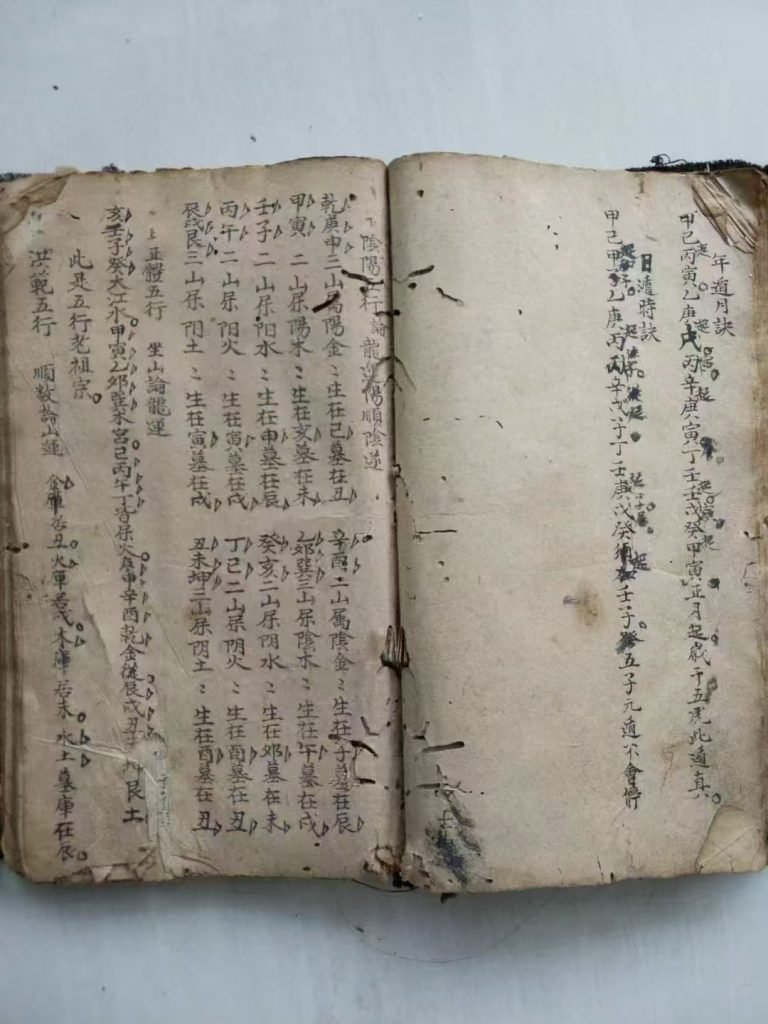 年遁月訣
甲己丙寅乙庚戊丙辛庚寅丁壬壬戊癸甲寅正月起歲干五虎此遁真
日遁時訣
甲己甲子乙庚丙丙辛戊子丁壬庚戊癸須壬子五子元遁不會停
陰陽五行論龍運陽順陰逆
乾庚申三山属陽金〻生在己墓在丑 辛酉二山属陰金〻生在子墓在辰
甲寅二山屬陽木〻生在亥墓在未 乙卯巽三山屬陰木〻生在午墓在戌
壬子二山屬阳水〻生在申墓在辰 癸亥二山屬阴水〻生在卯墓在未
丙午二山屬阳火〻生在寅墓在戌 丁己二山屬阴火〻生在酉墓在丑
辰戌艮三山屬阳土〻生在寅墓在戌 丑未坤三山屬阴土〻生在酉墓在丑
正體五行 坐山論龍運
亥壬子癸大江水甲寅乙卯巽木宮己丙午丁皆屬火庚申辛酉乾金從辰戌丑未坤艮土
此是五行老祖宗
洪範五行 順数論山運 金庫若丑火庫若戌木庫若未水土墓庫在辰